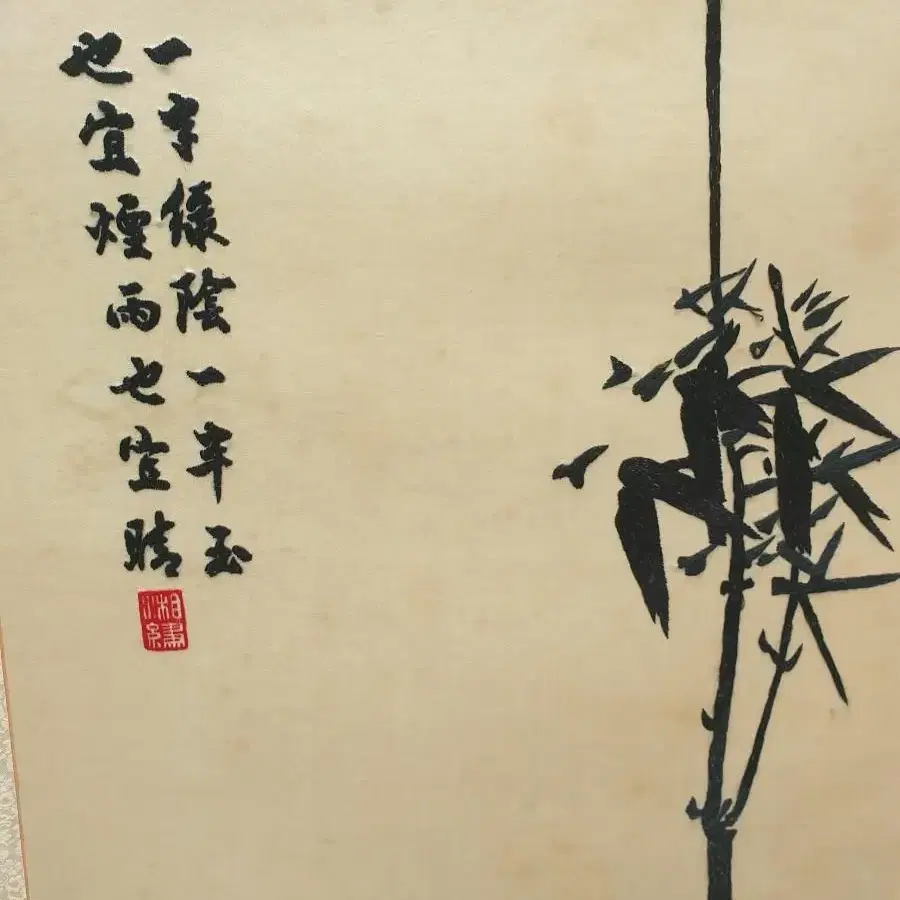 一半綠陰一半玉
也宜煙雨也宜晴
湘繡